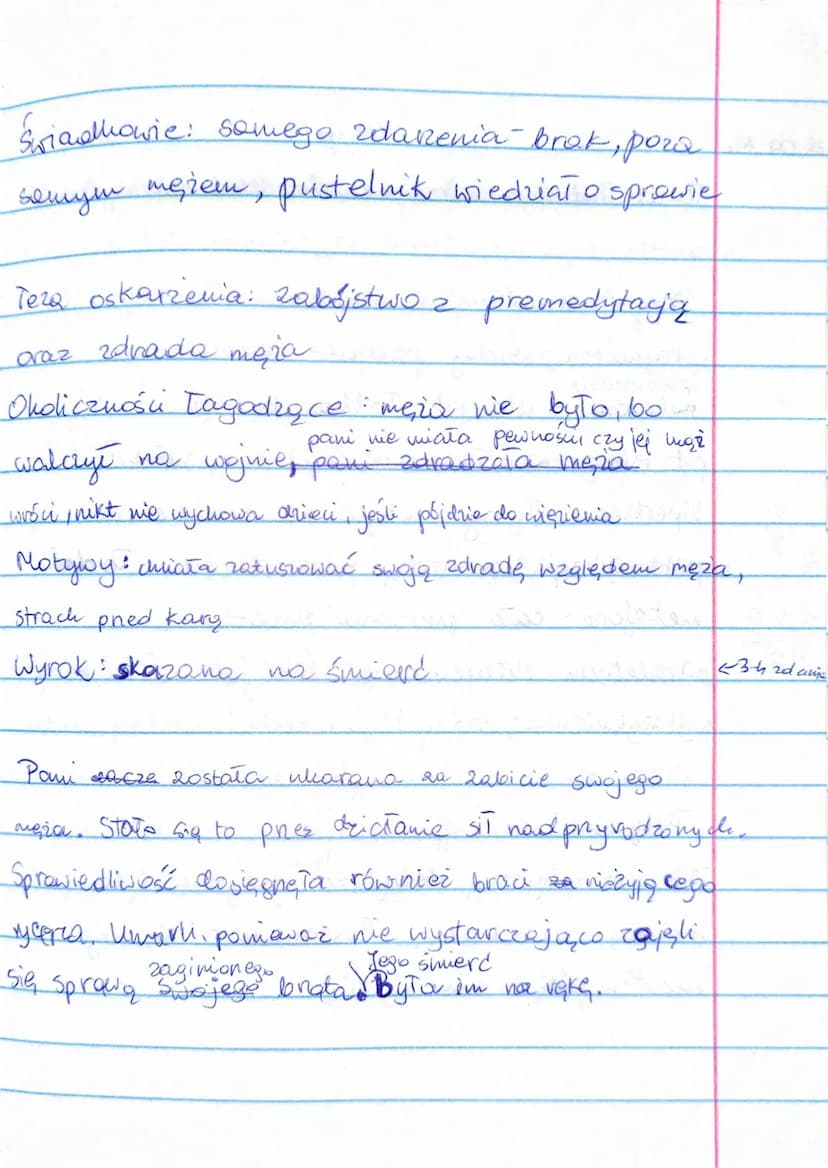 Świadkowie: samego zdarzenia - brak, poza
samym mężem, pustelnik wiedział o sprawie
Teza oskarżenia: zabójstwo z premedytacją
oraz zdrada męża
Okoliczności łagodzące: męża nie było, bo
pani nie miała pewności czy jej mąż
walczył na wojnie, pani zdradzała męża
wróci, nikt nie wychowa dzieci, jeśli pójdzie do więzienia
Motywy: chciała zatuszować swoją zdradę względem męża,
strach przed karą
Wyrok: skazana na śmierć ←3-4 zdania
Pani została ukarana za zabicie swojego
męża. Stało się to przez działanie sił nadprzyrodzonych.
Sprawiedliwość dosięgnęła również braci za nieżyjącego
rycerza. Umarli, ponieważ nie wystarczająco zajęli
zaginionego Jego śmierć
się sprawą swojego brata. Była im na rękę.